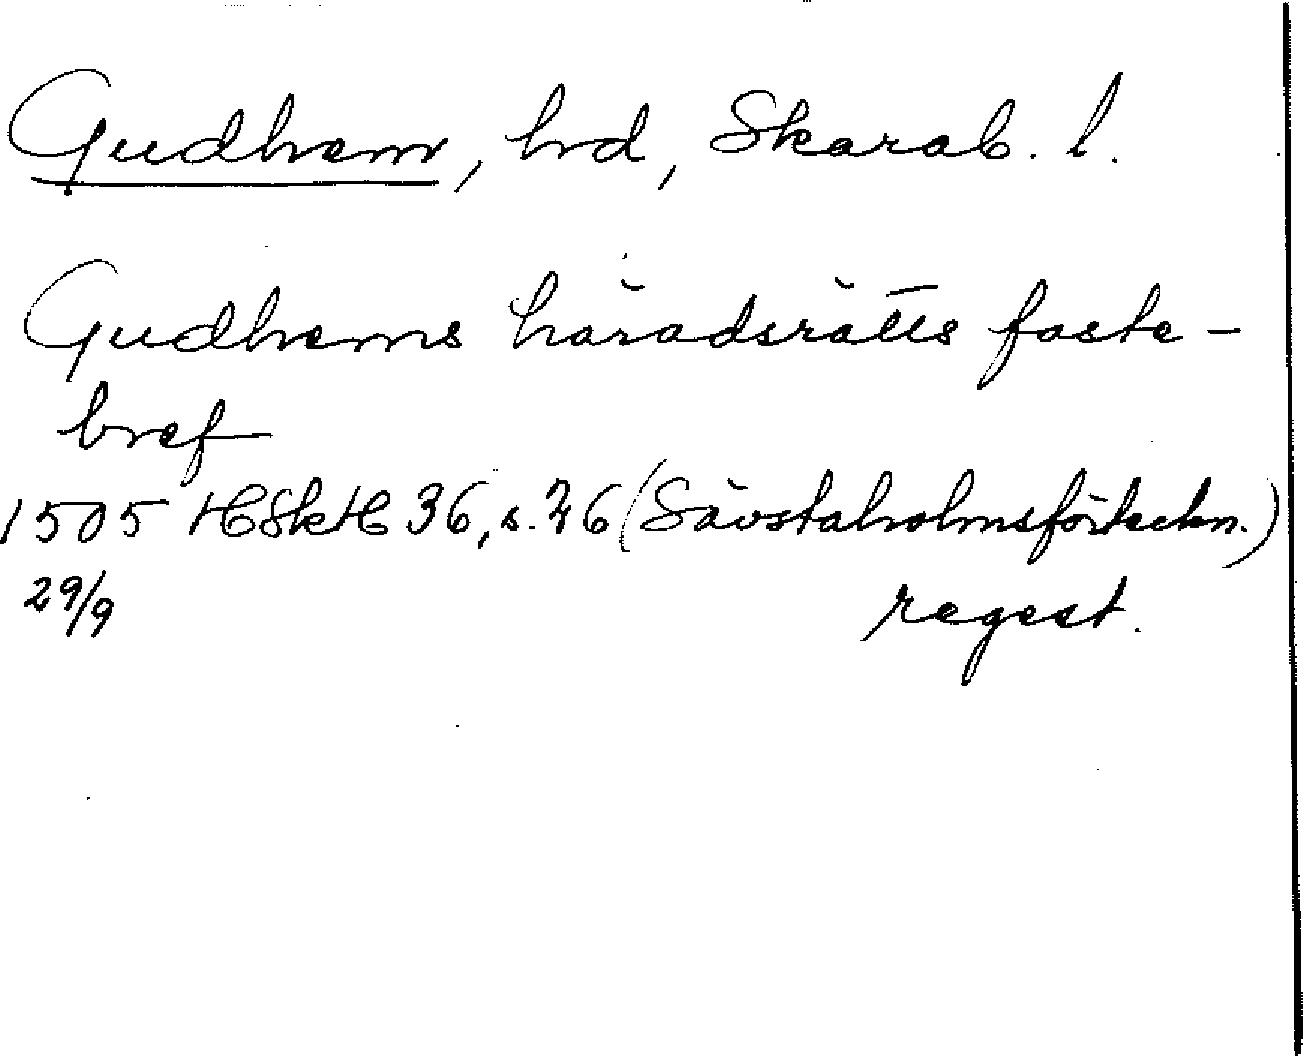 Gudhem, hd, Skarab. l.
Gudhems häradsrätts faste-
bref
1505 HSkH 36, s. 26 (Sävstaholmsförteckn.)
29/9 regest.